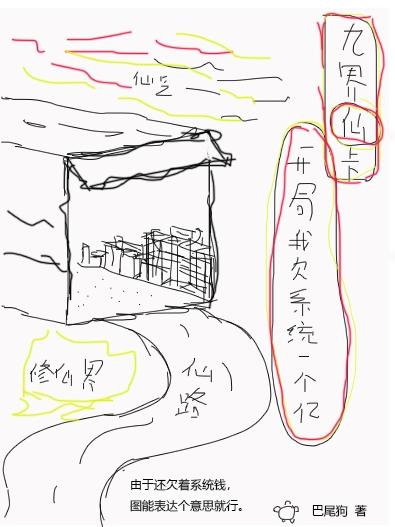 九界仙卡
开局我欠系统一个亿
仙气
修仙界
仙路
由于还欠着系统钱，
图能表达个意思就行。
巴尾狗 著